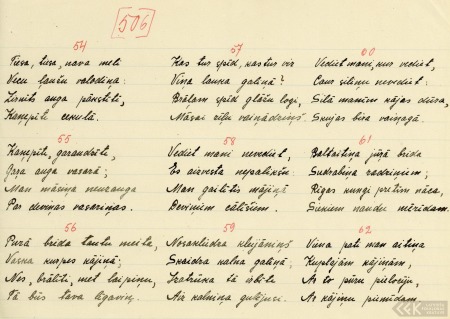 506
54
Tiesa, tiesa, nava meli
Vecu ļaužu valodiņa:
Zirnīts auga pākstīti,
Kaņepīte cekulā.
55
Kaņepīte, garaudzīte,
Gaŗa auga vasarā;
Man māsiņa neizauga
Par deviņas vasariņas.
56
Purā brida tautu meita,
Vasna kurpes kājiņā;
Nes, brālīti, met laipiņu,
Tā būs tava līgaviņ.
57
Kas tur spīd, kas tur viz
Viņa lauka galiņā?
Brāļam spīd glāžu logi,
Māsai zīļu vaiņadziņš.
58
Vediet mani nevediet,
Es aizvesta nepalikšu:
Man gaiļits mājiņā
Deviņiem cālīšiem.
59
Nosaulīdra klejāniņš
Skaidra kalna galiņā;
Iztrūkāa tā izbēla
Aiz kalniņa gulējusi.
60
Vediet mani, kur vediet,
Caur siliņu nevediet:
Silā manim kājas dūra,
Skujas bira vaiņagā.
61
Baltaitiņa jūŗā brida
Sudrabiņa radziņiem;
Rīgas kungi pretim nāca,
Siekiem naudu mērīdam.
62
Viena pati man aitiņa
Kuplajām kājiņām;
Ar to pūru pielociju,
Ar kājiņu piemīdam.